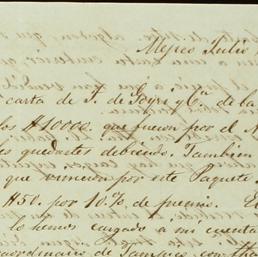 Mejico Julio
carta de F. de Geyri y Cia. de la
los $10000. que fueron por el
quedastes debiendo. Tambien
que vinieron por este Paquete
$50. por 10% de premio. El
lo hemos cargado a mi cuenta
traordinario de Tampico, con tha